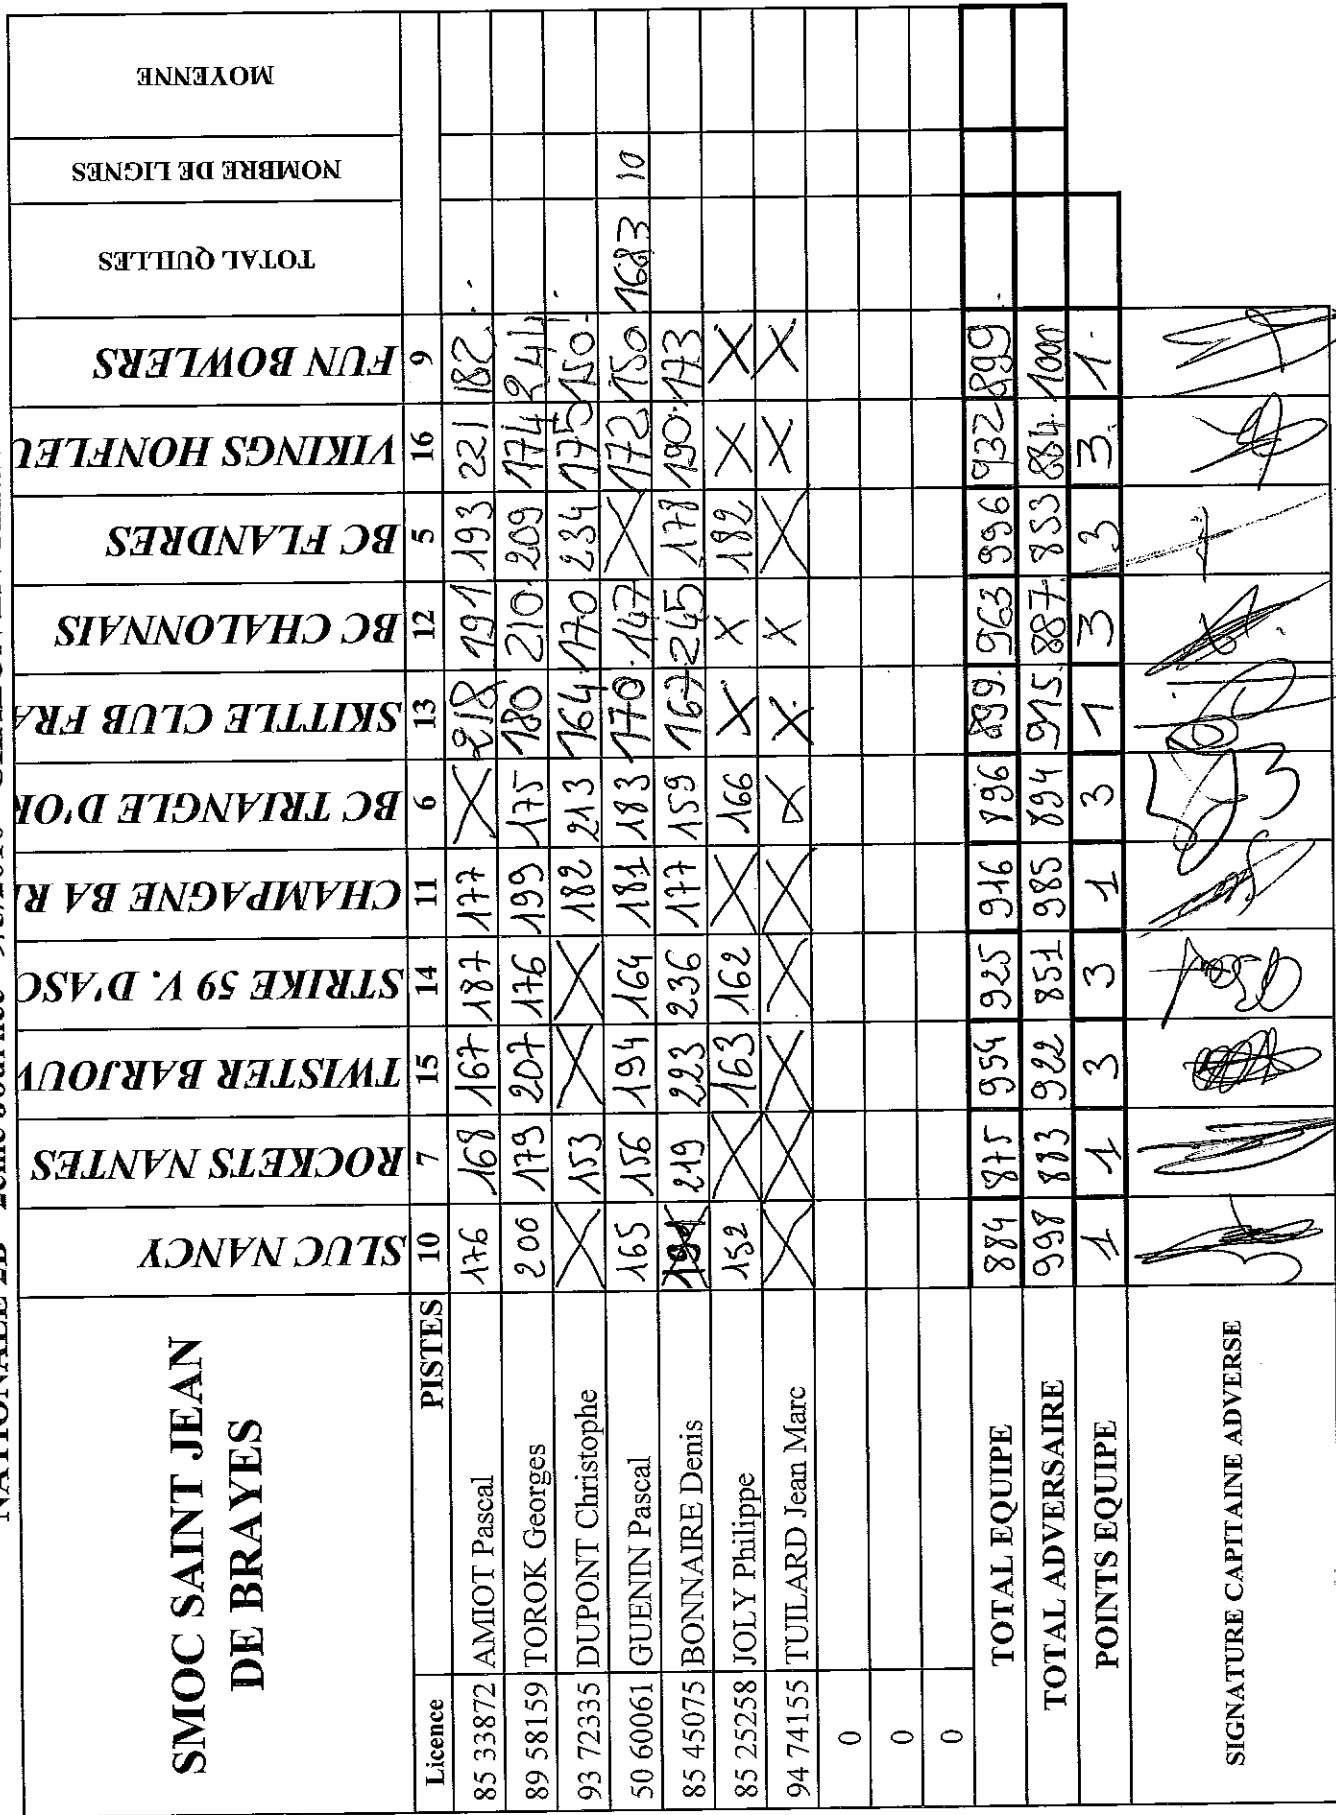 SMOC SAINT JEAN
DE BRAYES
SLUC NANCY
ROCKETS NANTES
TWISTER BARJOUV
STRIKE 59 V. D'ASC
CHAMPAGNE BA RE
BC TRIANGLE D'OR
SKITTLE CLUB FRA
BC CHALONNAIS
BC FLANDRES
VIKINGS HONFLEU
FUN BOWLERS
TOTAL QUILLES
NOMBRE DE LIGNES
MOYENNE
Licence PISTES 10 7 15 14 11 6 13 12 5 16 9
85 33872 AMIOT Pascal 176 168 167 187 177 X 218 191 193 221 182
89 58159 TOROK Georges 200 179 207 176 199 175 180 210 209 174 244
93 72335 DUPONT Christophe X 153 X X 182 213 164 170 234 175 150
50 60061 GUENIN Pascal 165 156 194 164 181 183 170 147 X 172 150 1683 10
85 45075 BONNAIRE Denis 191 219 223 236 177 159 167 245 178 190 173
85 25258 JOLY Philippe 152 X 163 162 X 166 X X 182 X X
94 74155 TUILARD Jean Marc X X X X X X X X X X X
0
0
0
TOTAL EQUIPE 884 875 954 925 916 896 899 963 996 932 899
TOTAL ADVERSAIRE 998 883 922 851 985 894 915 887 853 884 1000
POINTS EQUIPE 1 1 3 3 1 3 1 3 3 3 1
SIGNATURE CAPITAINE ADVERSE